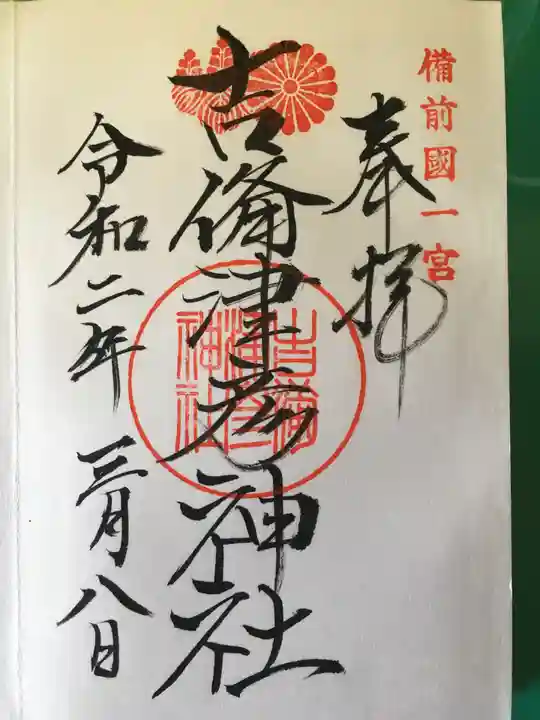 備前國一宮
奉拝
吉備津彦神社
吉備
津彦
神社
令和二年 三月八日